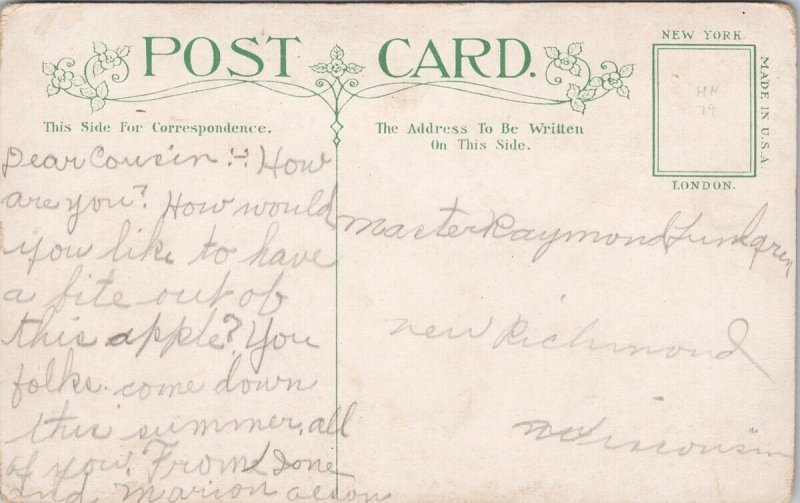 POST CARD.
NEW YORK
MADE IN U.S.A.
LONDON.
This Side For Correspondence.
The Address To Be Written
On This Side.
Dear Cousin:- How
are you? How would
you like to have
a bite out of
this apple? You
folks come down
this summer, all
of you. From
and Marion
Master Raymond Lundgren
New Richmond
Wisconsin